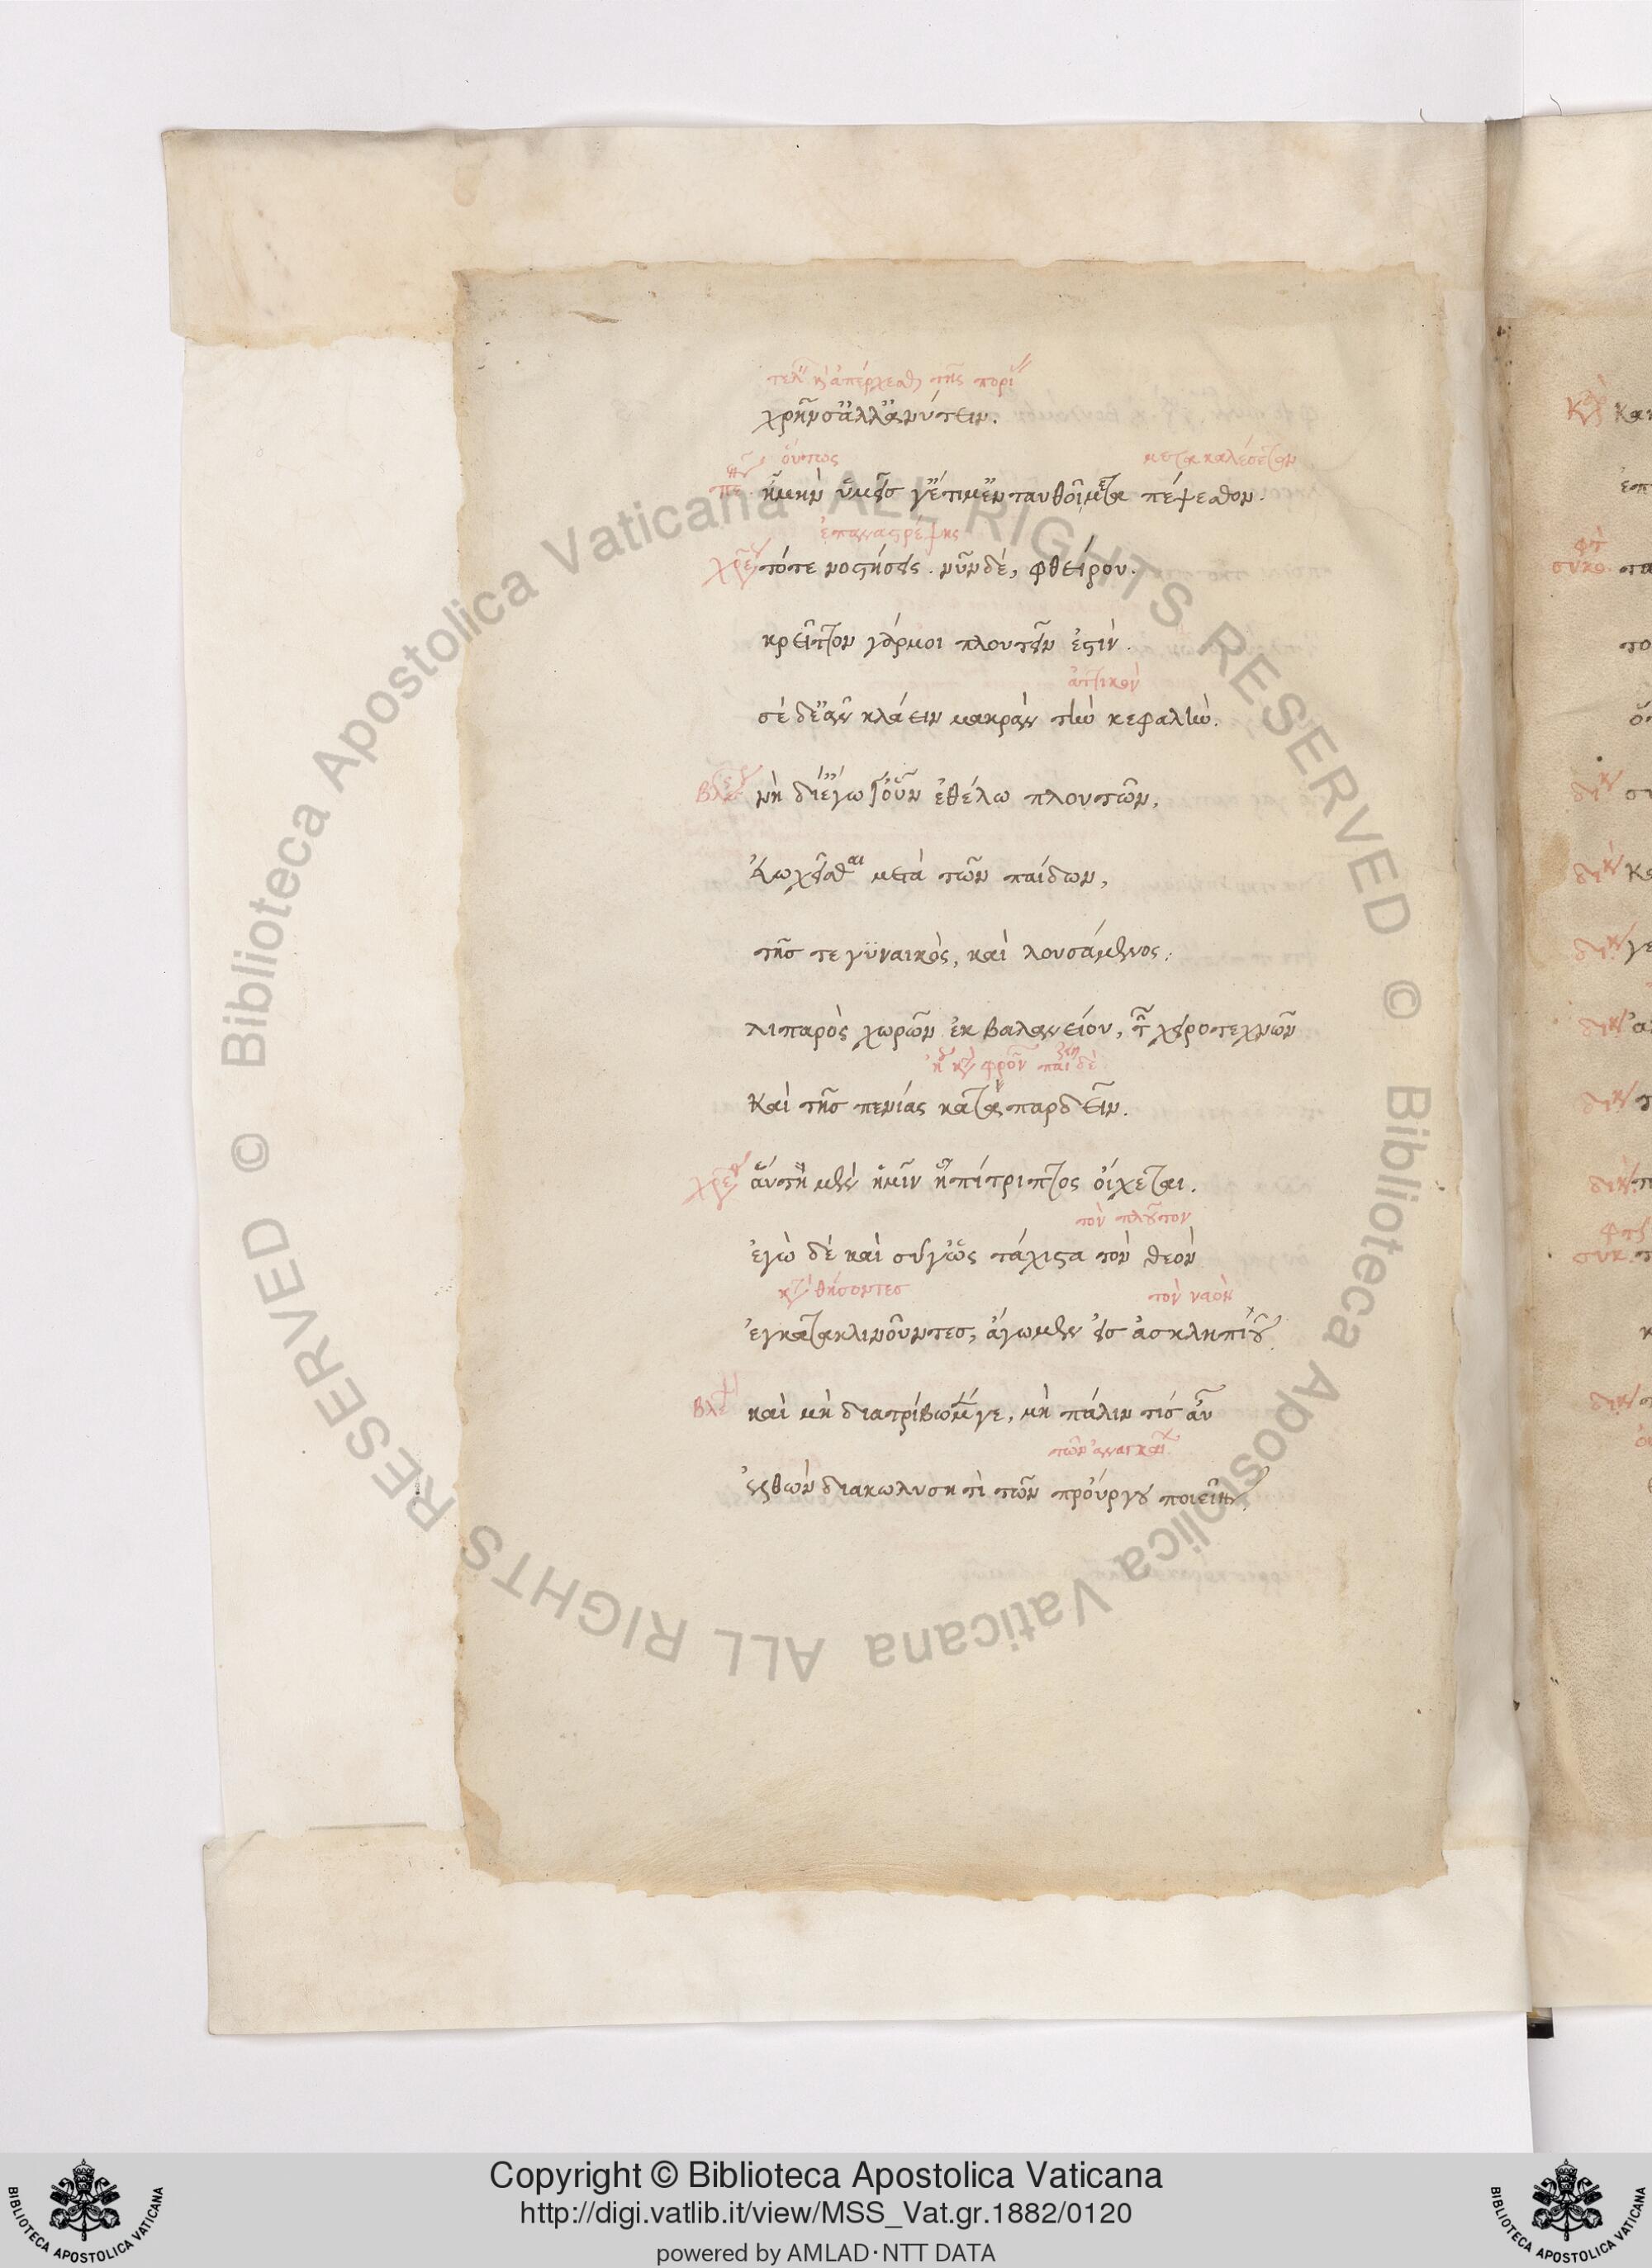 χρῆν σ' ἀλλ' ἀνύτειν.
ὄντως
μετακαλέσετον
ἦ μὴν ὑμεῖς γ' ἔτι μ' ἐνταυθοῖ μεταπέψεσθον.
ἐπαναστρέψης
τότε νοστήσεις. νῦν δὲ, φθείρου.
κρεῖττον γάρ μοι πλουτεῖν ἐστὶν.
ἀττικὸν
σὲ δ' ἐὰν κλάειν μακρὰν τὴν κεφαλὴν.
Βλε
νὴ δί' ἐγὼ γοῦν ἐθέλω πλουτῶν,
εὐωχεῖσθαι μετὰ τῶν παίδων,
τῆς τε γυναικὸς, καὶ λουσάμενος.
λιπαρὸς χωρῶν ἐκ βαλανείου, τῶν χειροτεχνῶν
καὶ τῆς πενίας καταπαρδεῖν.
αὕτη μὲν ἡμῖν ἡπίτριπτος οἴχεται.
τὸν πλοῦτον
ἐγὼ δὲ καὶ σύ γ' ὡς τάχιστα τὸν θεὸν
τὸν ναὸν
ἐγκατακλινοῦντες, ἄγωμεν εἰς ἀσκληπιοῦ.
Βλε
καὶ μὴ διατρίβωμέν γε, μὴ πάλιν τίς αὖ
τῶν ἀναγκαί
ἐλθὼν διακωλύση τὶ τῶν προύργου ποιεῖν.
Copyright © Biblioteca Apostolica Vaticana
http://digi.vatlib.it/view/MSS_Vat.gr.1882/0120
powered by AMLAD·NTT DATA